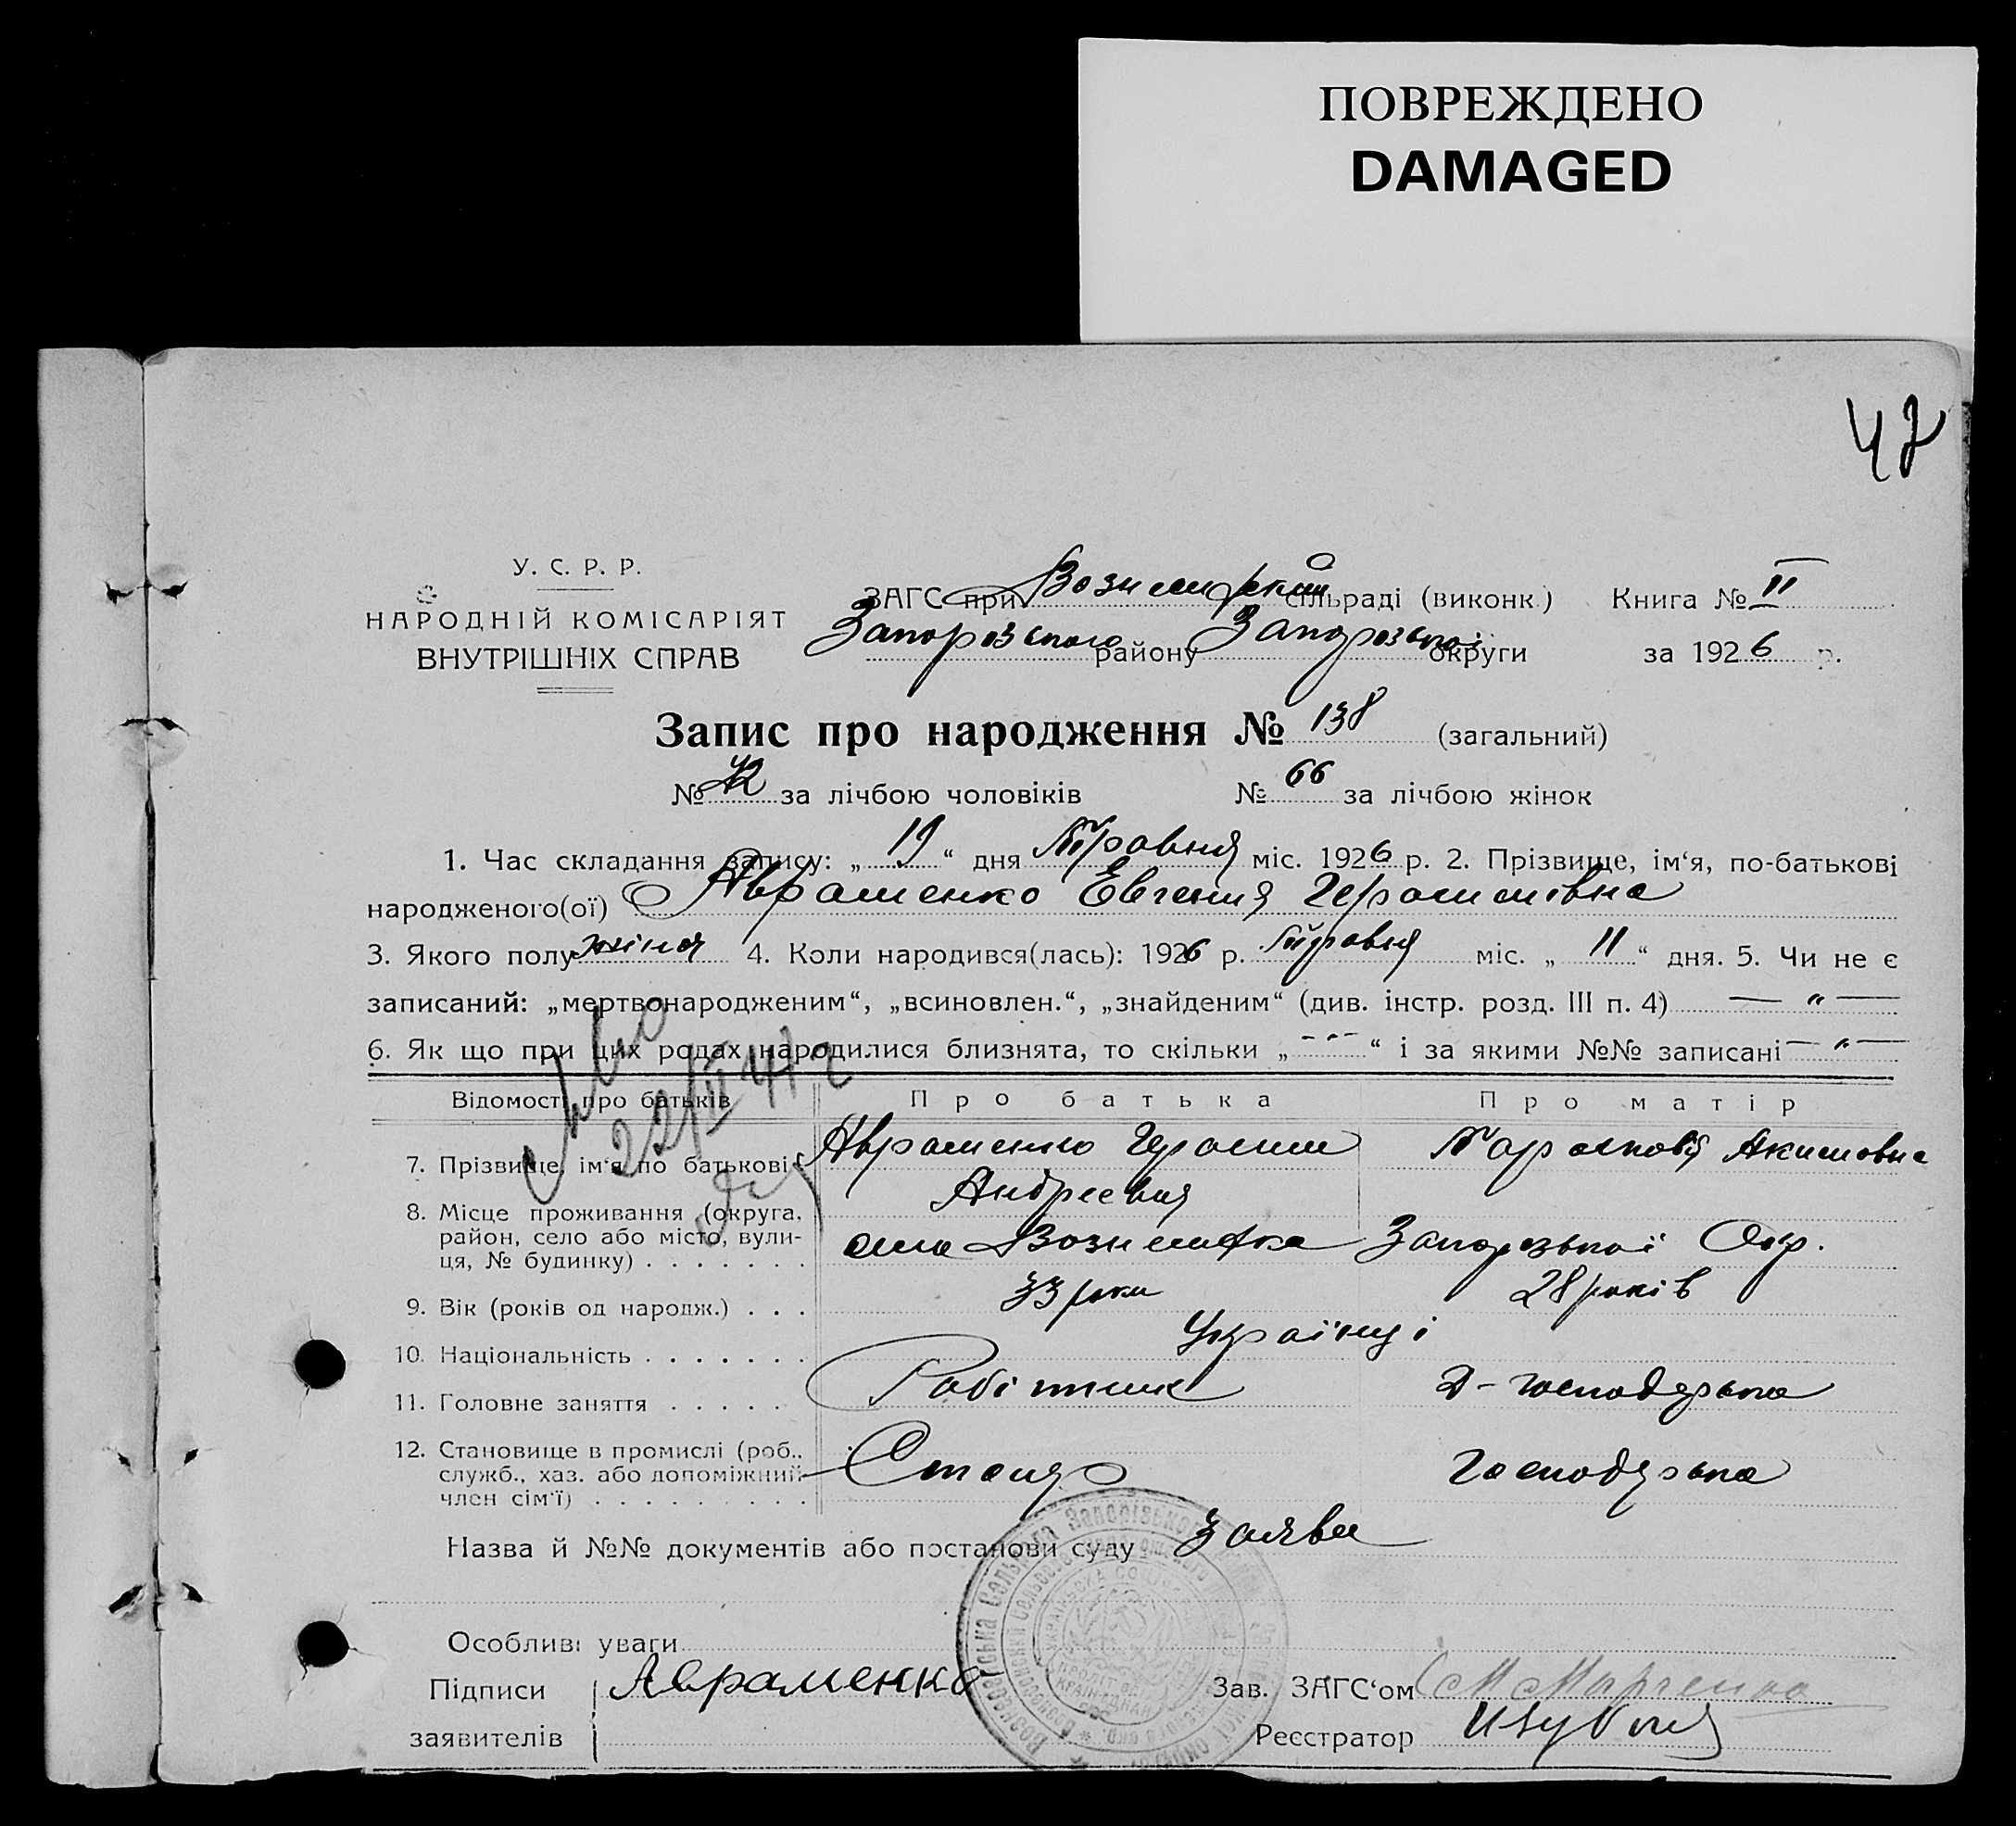 ПОВРЕЖДЕНО
DAMAGED
47
У. С. Р. Р.
НАРОДНІЙ КОМІСАРІЯТ
ВНУТРІШНІХ СПРАВ
ЗАГС при сільраді (виконк.) Книга № II
Запорозького району Запорозької округи за 1926 р.
Запис про народження № 138 (загальний)
№ за лічбою чоловіків № 66 за лічбою жінок
1. Час складання запису: „ 19 “ дня Травня міс. 1926 р. 2. Прізвище, ім‘я, по-батькові
народженого(ої) Авраменко Евгения Герасимівна
3. Якого полу жіноч 4. Коли народився(лась): 1926 р. Травня міс. „ 11 “ дня. 5. Чи не є
записаний: „мертвонародженим“, „всиновлен.“, „знайденим“ (див. інстр. розд. III п. 4) — „ —
6. Як що при цих родах народилися близнята, то скільки „ - “ - “ і за якими №№ записані — „ —
22/II 41 г
Відомості про батьків Про батька Про матір
7. Прізвище, ім‘я по батькові Авраменко Герасим Парасковія Акимовна
Андреевич
8. Місце проживання (округа,
район, село або місто, вули-
ця, № будинку) . . . . . . . Запорозької Окр.
9. Вік (років од народж.) . . . 33 роки 28 років
10. Національність . . . . . . . Українці
11. Головне заняття . . . . . Робітник Д-господарька
12. Становище в промислі (роб.,
служб., хаз. або допоміжний
член сім‘ї) . . . . . . . . . Господарька
Назва й №№ документів або постанови суду Заява
Особливі уваги
Підписи Авраменко Зав. ЗАГС‘ом Марченко
заявителів Реєстратор